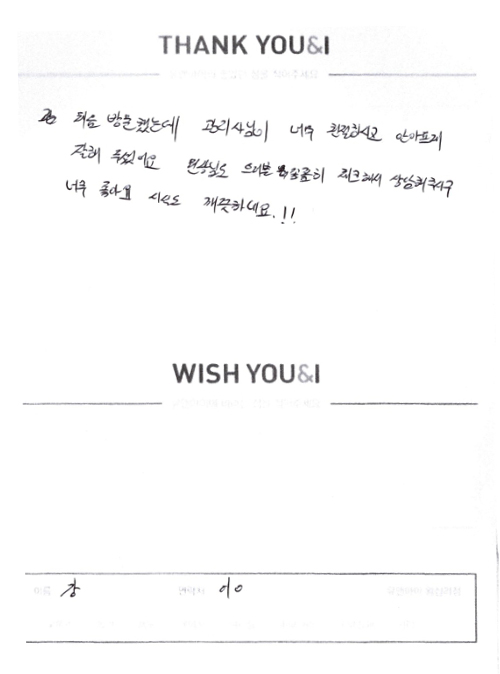 THANK YOU&I
처음 방문했는데 관리사님이 너무 친절하시고 안아프게
잘해 주셨어요 원장님도 피부를 꼼꼼히 체크해서 상담해주시구
너무 좋아요 시설도 깨끗하네요.!!
WISH YOU&I
강
이O